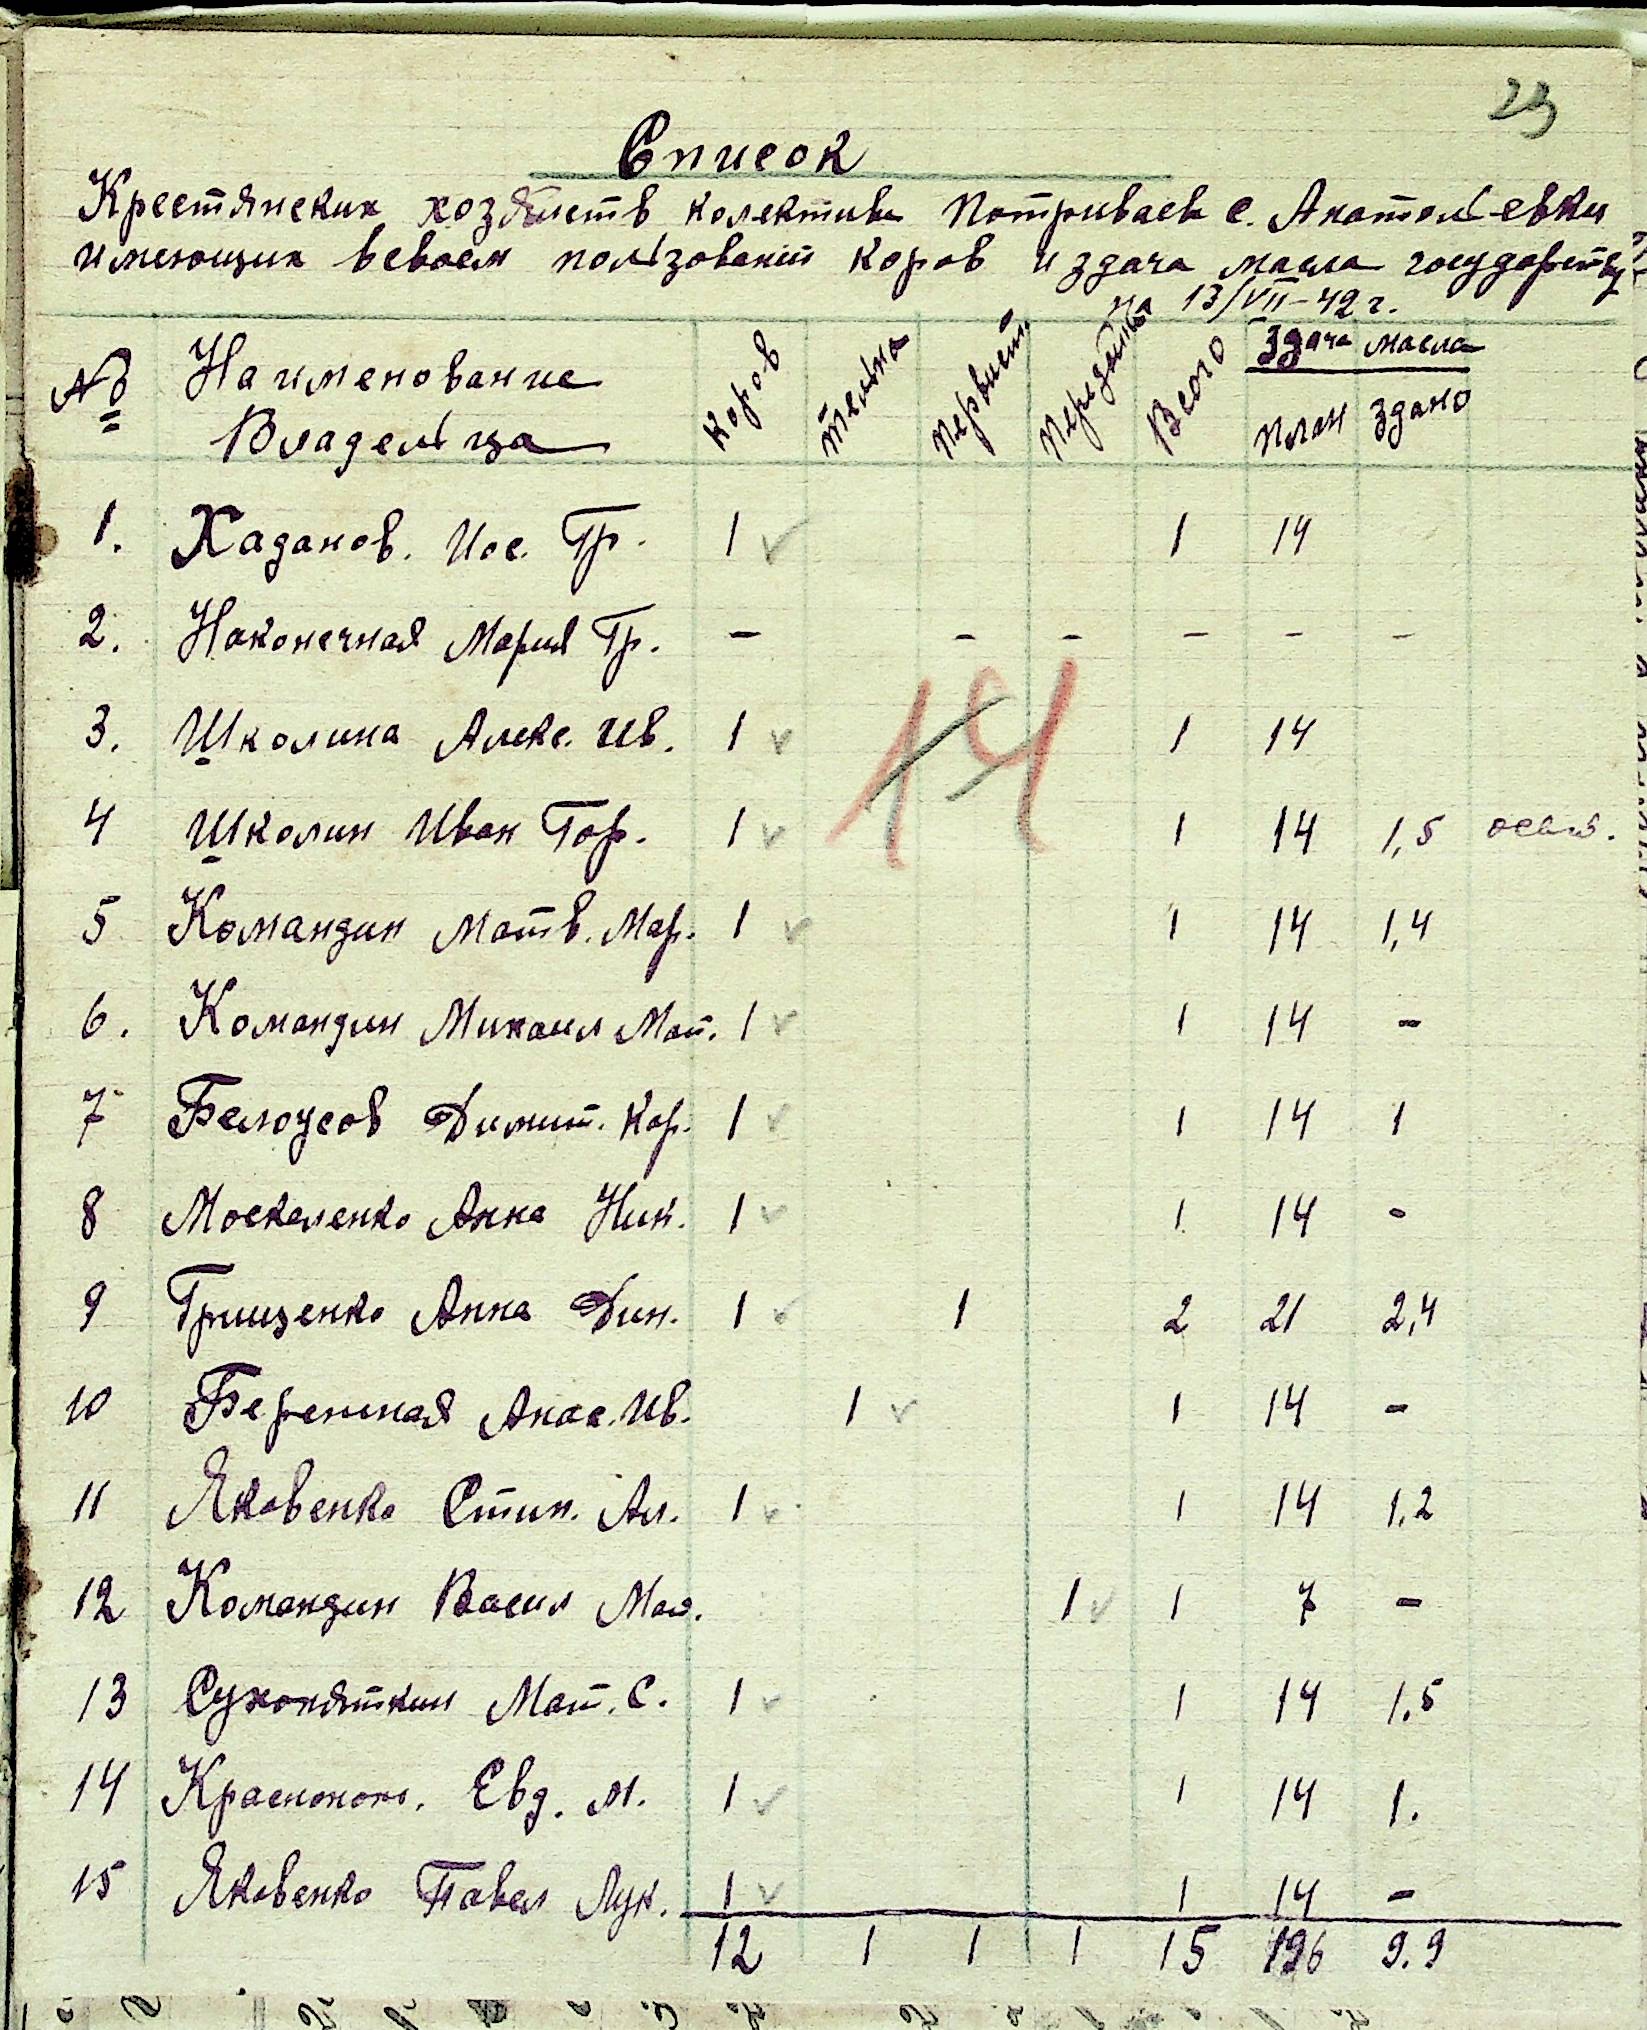 23
Список
Крестянских хозяйств колектива Потриваева с. Анатольевки
имеющих всвоем пользовании коров и здача масла государству
на 13/VII-42 г.
№ Наименование Владельца Коров Тельна Первист. Передойка Всего Здача масла План Здано
1. Хаданов. Иос. Гр. 1 1 14
2. Наконечная Мария Гр. - - - - - -
3. Школина Алекс. Ив. 1 1 14
14
4 Школин Иван Гор. 1 1 14 1,5
5 Командин Матв. Мар. 1 1 14 1,4
6. Командин Михаил Мат. 1 1 14 -
7 Белоусов Димит. Кар. 1 1 14 1
8 Москаленко Анна Ник. 1 1 14 -
9 Грищенко Анна Дин. 1 1 2 21 2,4
10 Анас. Ив. 1 1 14 -
11 Яковенко Стип. Ал. 1 1 14 1.2
12 Командин Васил Мат. 1 1 7 -
13 Сухопяткин Мат. С. 1 1 14 1.5
14 Евд. М. 1 1 14 1.
15 Яковенко Павел Лук. 1 1 14 -
12 1 1 1 15 196 9.9